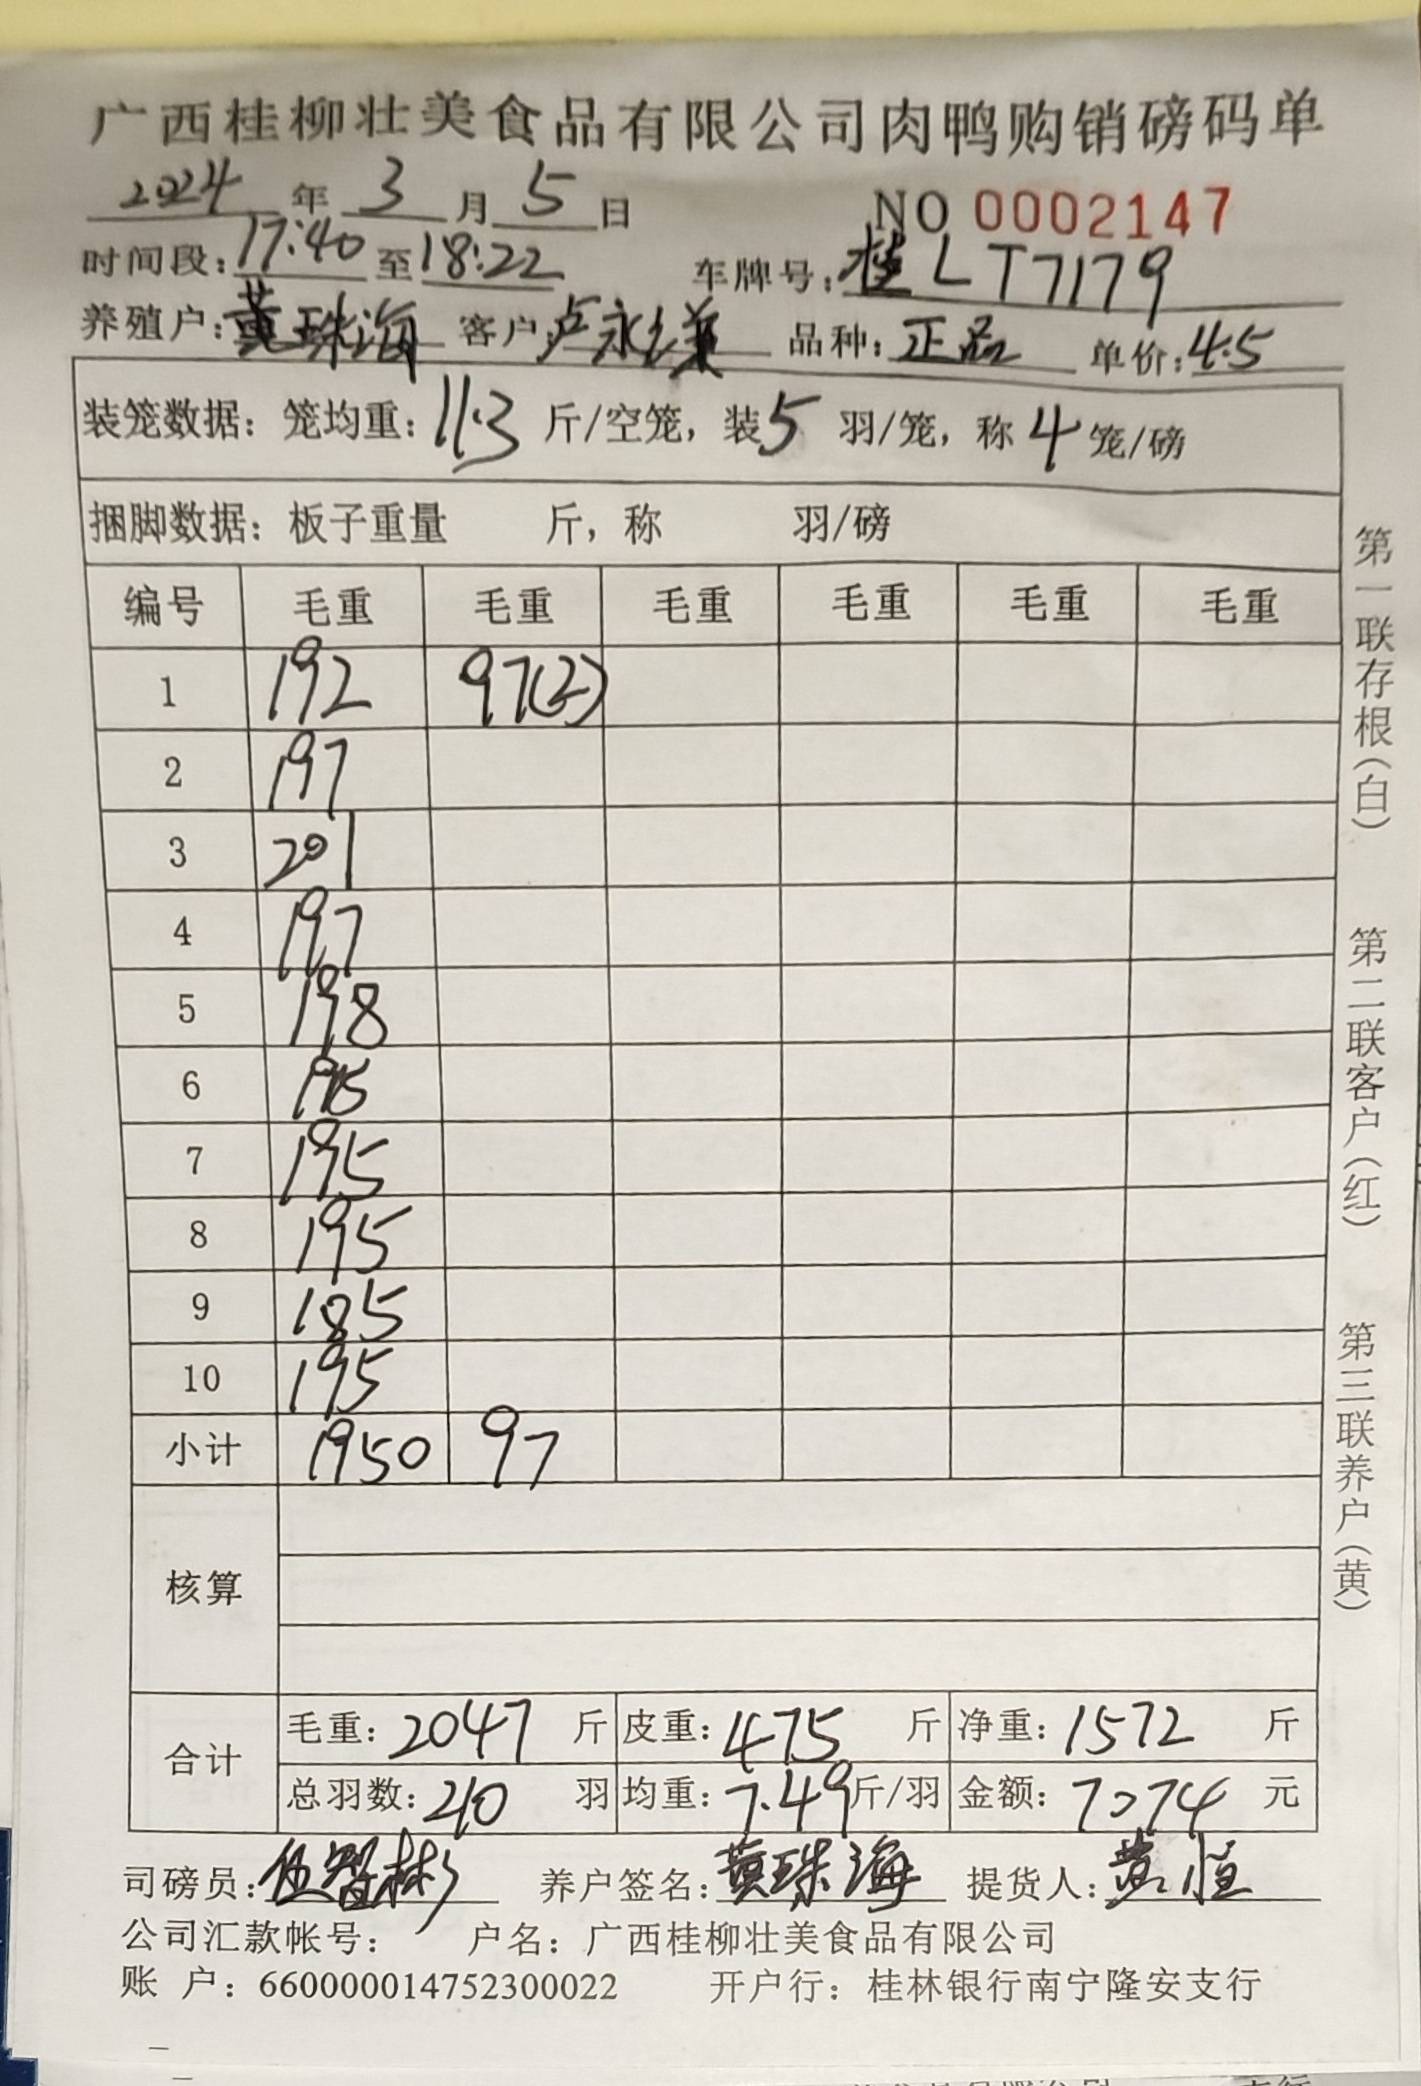 广西桂柳壮美食品有限公司肉鸭购销磅码单
2024 年 3 月 5 日 NO 0002147
时间段:17:40 至 18:22 车牌号:桂LT7179
养殖户:黄珠海 客户:卢永 品种:正品 单价:4.5
装笼数据:笼均重:11.3 斤/空笼,装 5 羽/笼,称 4 笼/磅
捆脚数据:板子重量 斤,称 羽/磅
编号 毛重 毛重 毛重 毛重 毛重 毛重
1 192 97(2)
2 197
3 201
4 197
5 198
6 195
7 195
8 195
9 185
10 195
小计 1950 97
核算
合计 毛重:2047 斤 皮重:475 斤 净重:1572 斤
总羽数:210 羽 均重:7.49 斤/羽 金额:7074 元
司磅员:伍智彬 养户签名:黄珠海 提货人:黄恒
公司汇款帐号: 户名:广西桂柳壮美食品有限公司
账 户:660000014752300022 开户行:桂林银行南宁隆安支行
第一联存根(白)
第二联客户(红)
第三联养户(黄)